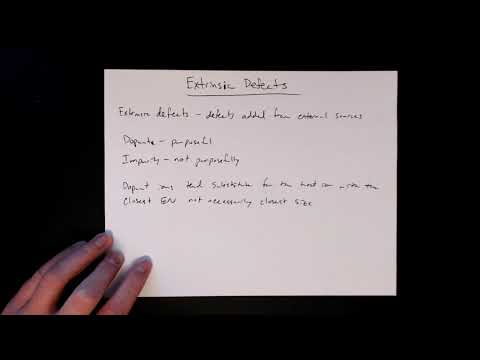 Extrinsic Defects
Extrinsic defects - defects added from external sources
Dopants - purposeful
Impurity - not purposefully
Dopant ions tend substitute for the host ion with the
closest EN not necessarily closest size